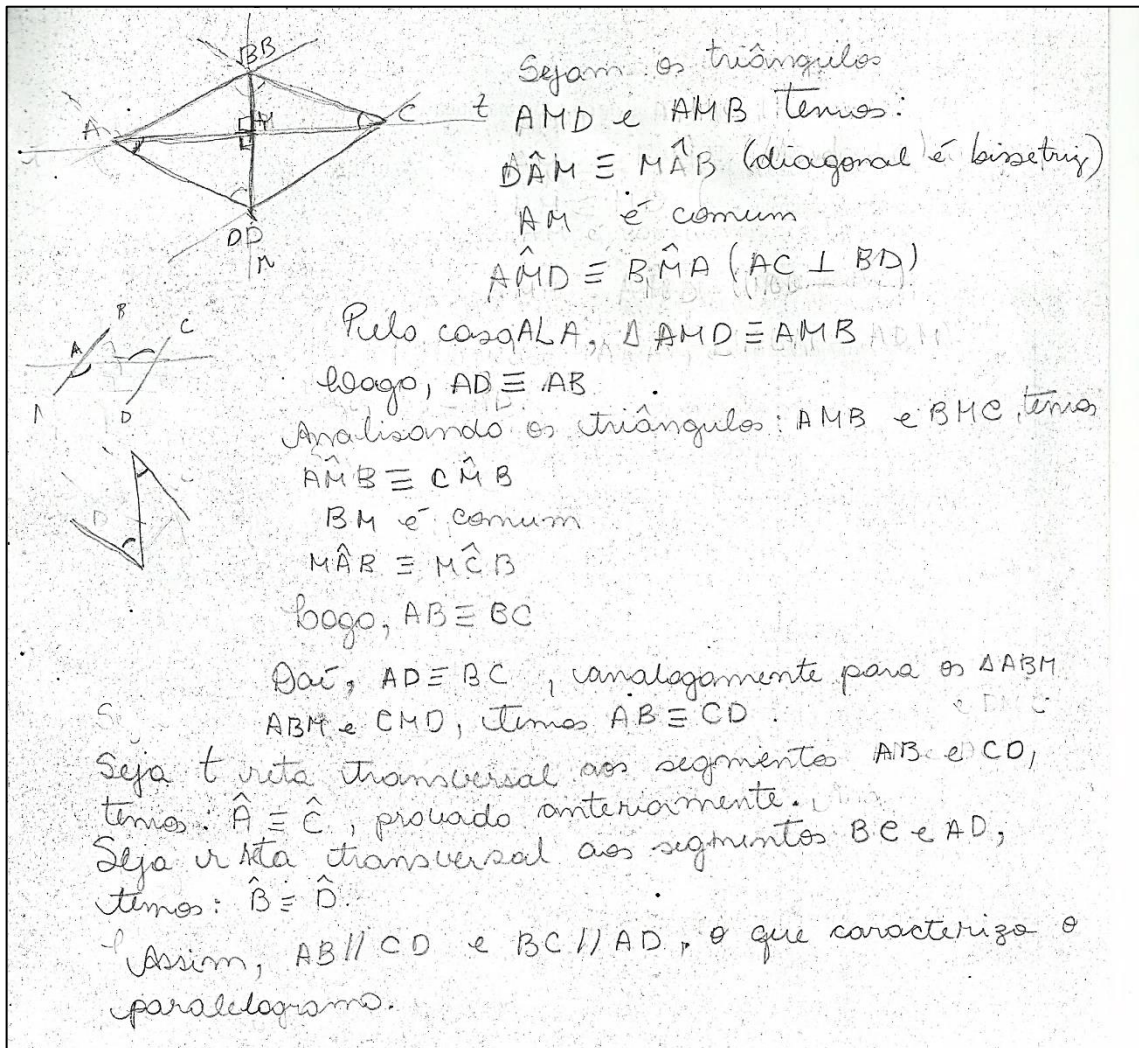 B B
A
M
C
t
D D
r
Sejam os triângulos
AMD e AMB temos:
DÂM ≡ MÂB (diagonal é bissetriz)
AM é comum
AM̂D ≡ BM̂A (AC ⊥ BD)
Pelo caso ALA, Δ AMD ≡ AMB
Logo, AD ≡ AB
B
C
A
D
Analisando os triângulos: AMB e BMC, temos
AM̂B ≡ CM̂B
BM é comum
MÂB ≡ MĈB
Logo, AB ≡ BC
Daí, AD ≡ BC, analogamente para os ΔABM
ABM e CMD, temos AB ≡ CD.
Seja t reta transversal aos segmentos AB e CD,
temos: Â ≡ Ĉ, provado anteriormente.
Seja r reta transversal aos segmentos BC e AD,
temos: B̂ ≡ D̂.
Assim, AB // CD e BC // AD, o que caracteriza o
paralelogramo.